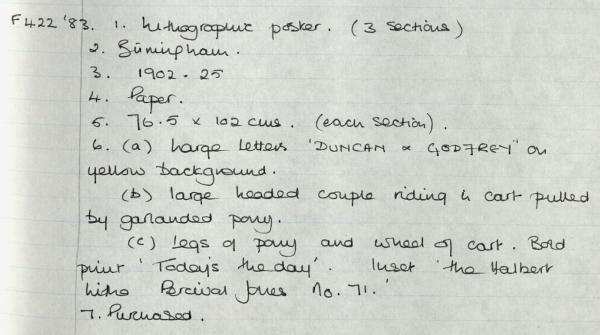 F422 '83. 1. Lithographic poster. (3 sections)
2. Birmingham.
3. 1902 - 25
4. Paper.
5. 76.5 x 102 cms. (each section).
6. (a) Large letters 'DUNCAN & GODFREY' on
yellow background.
(b) large headed couple riding in cart pulled
by garlanded pony.
(c) Legs of pony and wheel of cart. Bold
print 'Today's the day'. Inset 'the Halbert
Litho Percival Jones No. 71.'
7. Purchased.